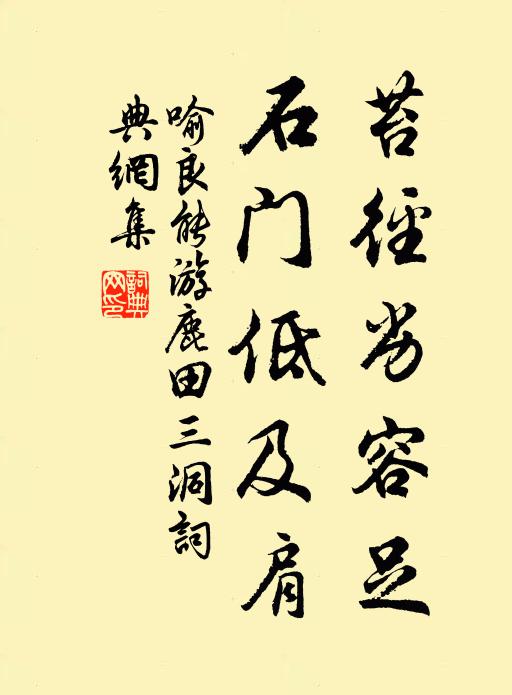 苔徑劣容足
石门低及肩
喻良能游鹿田三洞詞
典網集
詞典网印